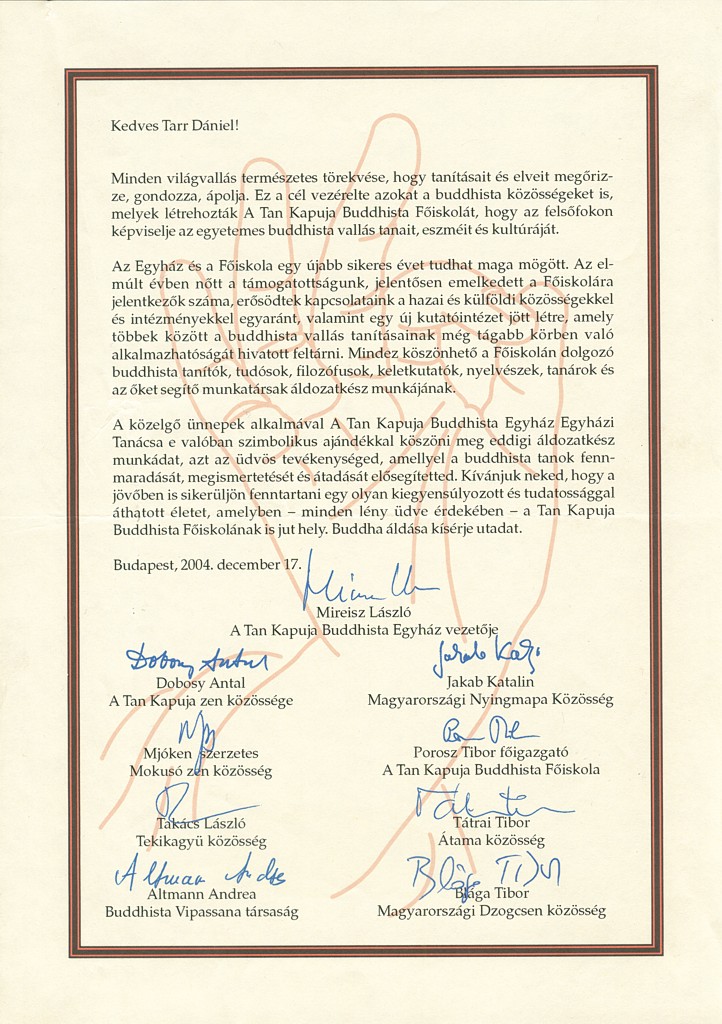 Kedves Tarr Dániel!
Minden világvallás természetes törekvése, hogy tanításait és elveit megőriz-
ze, gondozza, ápolja. Ez a cél vezérelte azokat a buddhista közösségeket is,
melyek létrehozták A Tan Kapuja Buddhista Főiskolát, hogy az felsőfokon
képviselje az egyetemes buddhista vallás tanait, eszméit és kultúráját.
Az Egyház és a Főiskola egy újabb sikeres évet tudhat maga mögött. Az el-
múlt évben nőtt a támogatottságunk, jelentősen emelkedett a Főiskolára
jelentkezők száma, erősödtek kapcsolataink a hazai és külföldi közösségekkel
és intézményekkel egyaránt, valamint egy új kutatóintézet jött létre, amely
többek között a buddhista vallás tanításainak még tágabb körben való
alkalmazhatóságát hivatott feltárni. Mindez köszönhető a Főiskolán dolgozó
buddhista tanítók, tudósok, filozófusok, keletkutatók, nyelvészek, tanárok és
az őket segítő munkatársak áldozatkész munkájának.
A közelgő ünnepek alkalmával A Tan Kapuja Buddhista Egyház Egyházi
Tanácsa e valóban szimbolikus ajándékkal köszöni meg eddigi áldozatkész
munkádat, azt az üdvös tevékenységed, amellyel a buddhista tanok fenn-
maradását, megismertetését és átadását elősegítetted. Kívánjuk neked, hogy a
jövőben is sikerüljön fenntartani egy olyan kiegyensúlyozott és tudatossággal
áthatott életet, amelyben – minden lény üdve érdekében – a Tan Kapuja
Buddhista Főiskolának is jut hely. Buddha áldása kísérje utadat.
Budapest, 2004. december 17.
Mireisz László
A Tan Kapuja Buddhista Egyház vezetője
Dobosy Antal
Dobosy Antal
A Tan Kapuja zen közössége
Jakab Katalin
Magyarországi Nyingmapa Közösség
Mjóken szerzetes
Mokusó zen közösség
Porosz Tibor főigazgató
A Tan Kapuja Buddhista Főiskola
Takács László
Tekikagyü közösség
Tátrai Tibor
Átama közösség
Altmann Andrea
Buddhista Vipassana társaság
Blága Tibor
Magyarországi Dzogcsen közösség